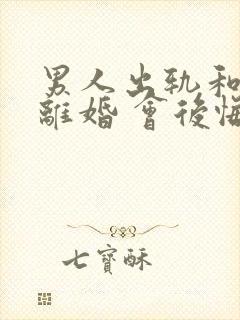 男人出軌和
離婚會後悔
七寶酥